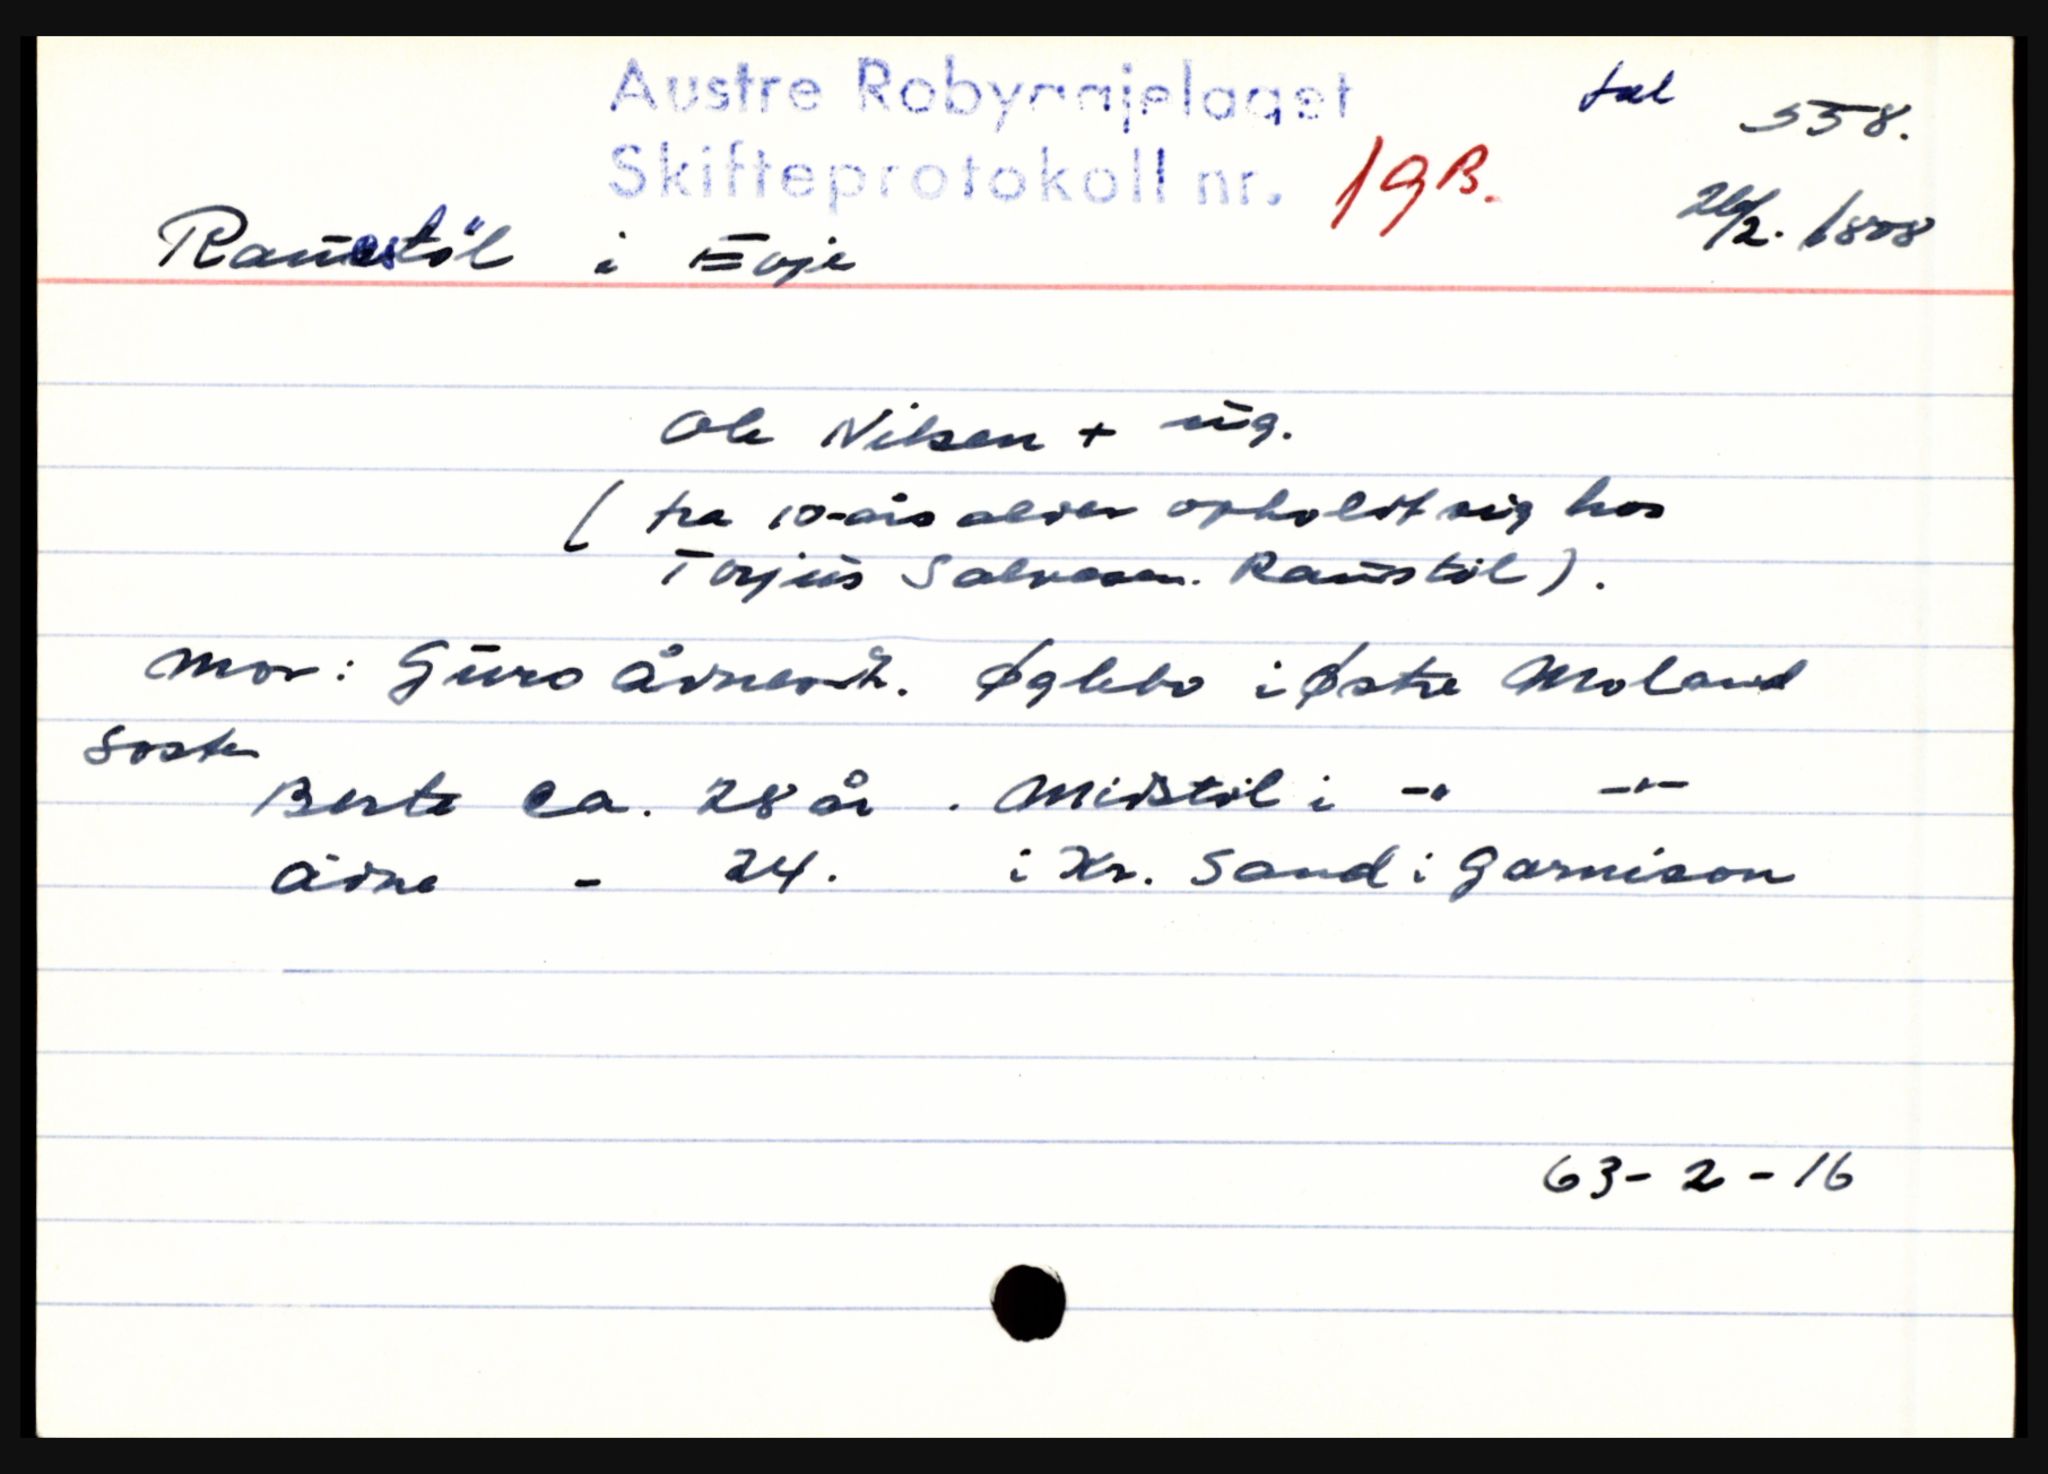 Austre Robyggjelaget
Skifteprotokoll nr. 19B.
fol 558.
26/2. 1808
Raustöl i Evje
Ole Nilsen + ug.
( fra 10-års alder opholdt sig hos
Torjus Salvesen. Raustöl ).
Mor: Guro Ådnesd. Øglebo i Østre Moland
Søsken
Berte ca. 28 år . Midstöl i -"- -"-
Ådne - 24. i Kr. Sand i Garnison
63-2-16